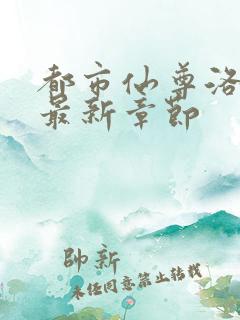 都市仙尊洛
最新章节
帥新
未经同意禁止转载